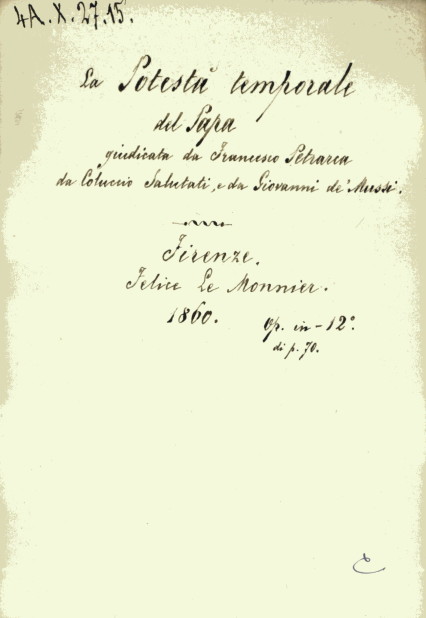 4A.X.27.15.
La Potestà temporale
del Papa
giudicata da Francesco Petrarca
da Coluccio Salutati, e da Giovanni de' Mussi.
Firenze.
Felice Le Monnier.
1860.
Op. in-12º.
di p. 70.